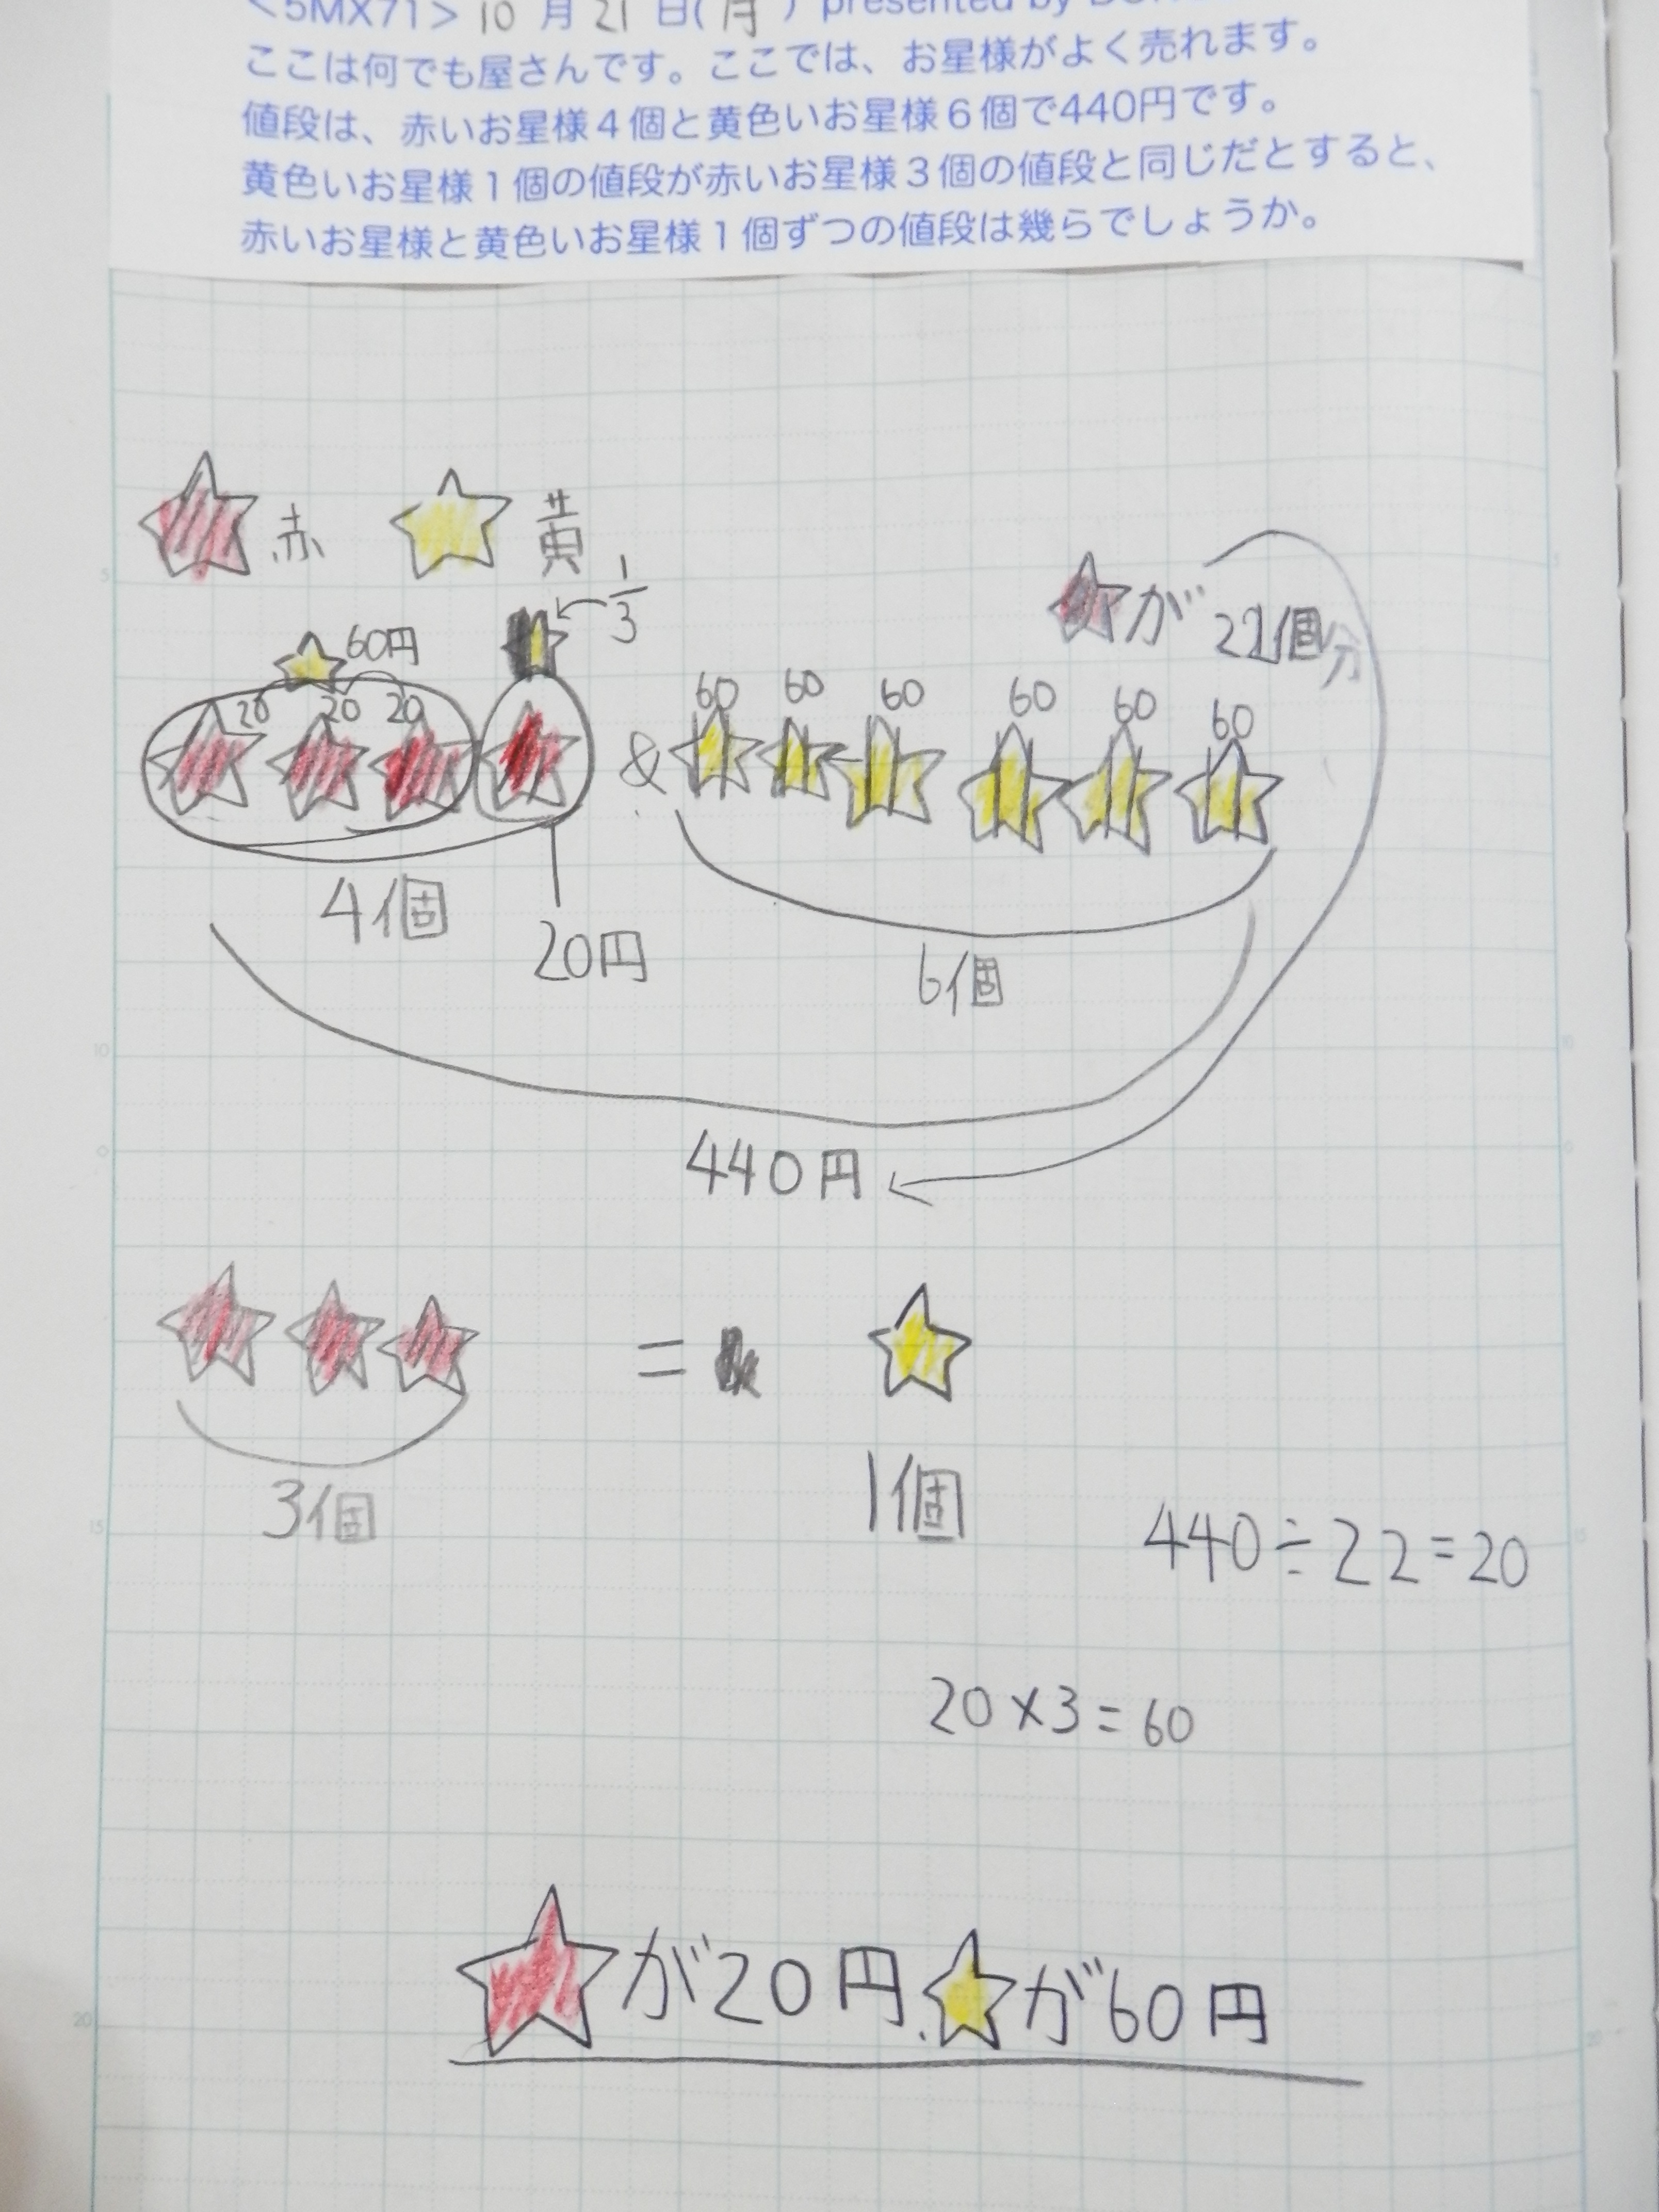 <5MX71> 10月21日(月) presented by
ここは何でも屋さんです。ここでは、お星様がよく売れます。
値段は、赤いお星様4個と黄色いお星様6個で440円です。
黄色いお星様1個の値段が赤いお星様3個の値段と同じだとすると、
赤いお星様と黄色いお星様1個ずつの値段は幾らでしょうか。
赤 黄
1/3
が22個分
60円
20 20 20 & 60 60 60 60 60 60
4個
20円
6個
440円
=
3個 1個
440÷22=20
20×3=60
が20円、が60円
5
10
0
15
20